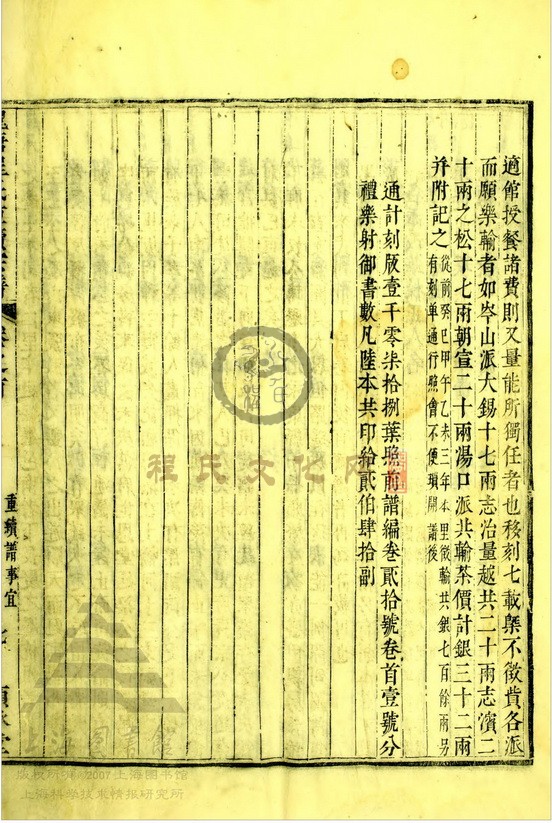 適館授餐諸費則又量能所獨任者也移刻七載槩不徵貲各派
而願樂輸者如岑山派大錫十七兩志治量越共二十兩志濱二
十兩之松十七兩朝宣二十兩湯口派共輸茶價計銀三十二兩
并附記之
從前癸巳甲午乙未三年本里徵輸共銀七百餘兩另
有刻单通行照會不便瑣開譜後
通計刻版壹千零柒拾捌葉照前譜編卷貳拾號卷首壹號分
禮樂射御書數凡陸本共印給貳伯肆拾副
重續譜事宜
程氏文化
上海圖書館
版权所有 2007 上海图书馆
上海科学技术情报研究所